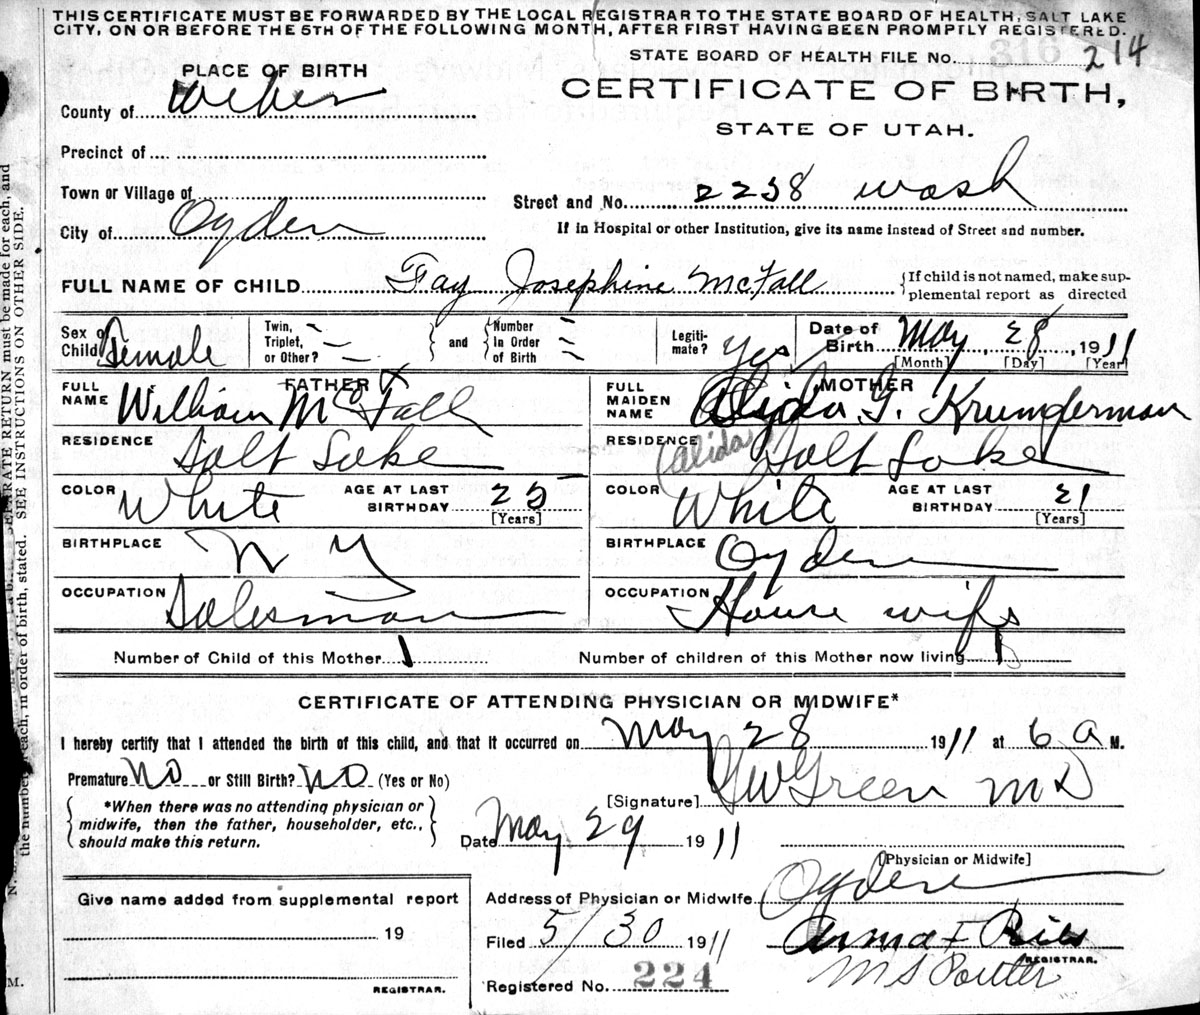 THIS CERTIFICATE MUST BE FORWARDED BY THE LOCAL REGISTRAR TO THE STATE BOARD OF HEALTH, SALT LAKE
CITY, ON OR BEFORE THE 5TH OF THE FOLLOWING MONTH, AFTER FIRST HAVING BEEN PROMPTLY REGISTERED.
STATE BOARD OF HEALTH FILE No. 316 214
PLACE OF BIRTH
CERTIFICATE OF BIRTH,
County of Weber
STATE OF UTAH.
Precinct of
Town or Village of
Street and No. 2238 Wash
City of Ogden
If in Hospital or other Institution, give its name instead of Street and number.
FULL NAME OF CHILD Fay Josephine McFall
{If child is not named, make sup-
plemental report as directed
Sex of Child Female
Twin, Triplet, or Other? { and } Number In Order of Birth
Legiti-mate? Yes
Date of Birth May, 28, 1911
[Month] [Day] [Year]
FATHER
FULL NAME William McFall
MOTHER
FULL MAIDEN NAME Alida G. Krumperman
(alida)
RESIDENCE Salt Lake
RESIDENCE Salt Lake
COLOR White AGE AT LAST BIRTHDAY 25 [Years]
COLOR White AGE AT LAST BIRTHDAY 21 [Years]
BIRTHPLACE N Y
BIRTHPLACE Ogden
OCCUPATION Salesman
OCCUPATION House wife
Number of Child of this Mother 1
Number of children of this Mother now living 1
CERTIFICATE OF ATTENDING PHYSICIAN OR MIDWIFE*
I hereby certify that I attended the birth of this child, and that it occurred on May 28 1911 at 6 a M.
Premature No or Still Birth? No (Yes or No)
[Signature] GW Green MD
*When there was no attending physician or
midwife, then the father, householder, etc.,
should make this return.
Date May 29 1911
[Physician or Midwife]
Give name added from supplemental report
19
REGISTRAR.
Address of Physician or Midwife Ogden
Filed 5/30 1911
REGISTRAR.
Registered No. 224
SEPARATE RETURN must be made for each, and
the number of each, in order of birth, stated. SEE INSTRUCTIONS ON OTHER SIDE.